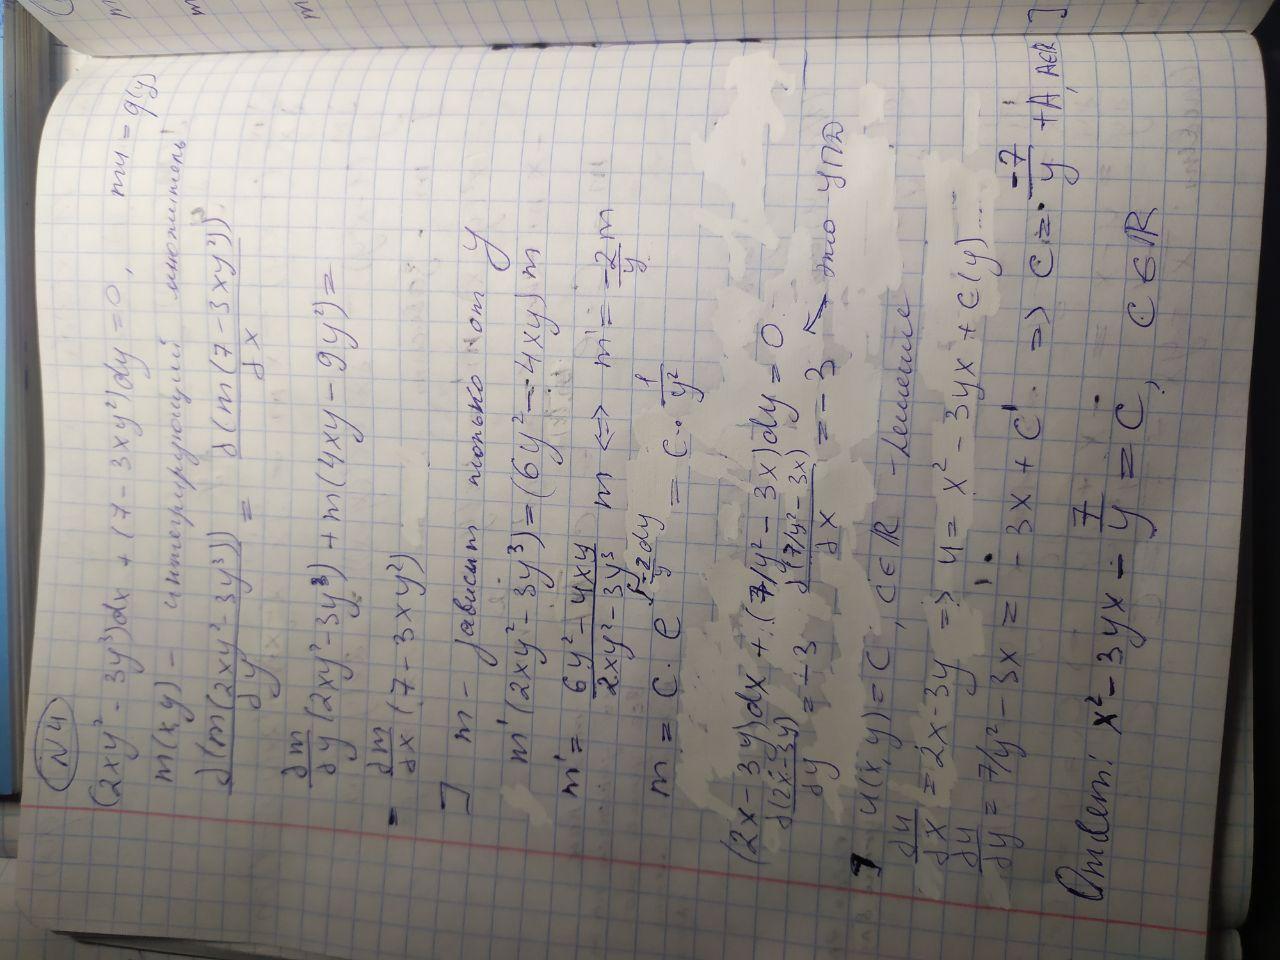 N4
(2xy² - 3y³)dx + (7 - 3xy²)dy = 0, m = φ(y)
m(x,y) - интегрирующий множитель
∂(m(2xy² - 3y³))/∂y = ∂(m(7 - 3xy²))/∂x
∂m/∂y (2xy² - 3y³) + m(4xy - 9y²) =
- ∂m/∂x (7 - 3xy²)
] m - зависит только от y
m'(2xy² - 3y³) = (6y² - 4xy) m
m' = (6y² - 4xy)/(2xy² - 3y³) m <=> m' = -2/y m
m = C · e^(∫-2/y dy) = C · 1/y²
(2x - 3y)dx + (7/y² - 3x)dy = 0
∂(2x - 3y)/∂y = -3 ∂(7/y² - 3x)/∂x = -3 ↖ это УПД
] u(x,y) = C, C∈ℝ - решение
∂u/∂x = 2x - 3y => u = x² - 3yx + C(y)
∂u/∂y = 7/y² - 3x = -3x + C' => C = -7/y + A, A∈ℝ ]
Ответ: x² - 3yx - 7/y = C, C∈ℝ